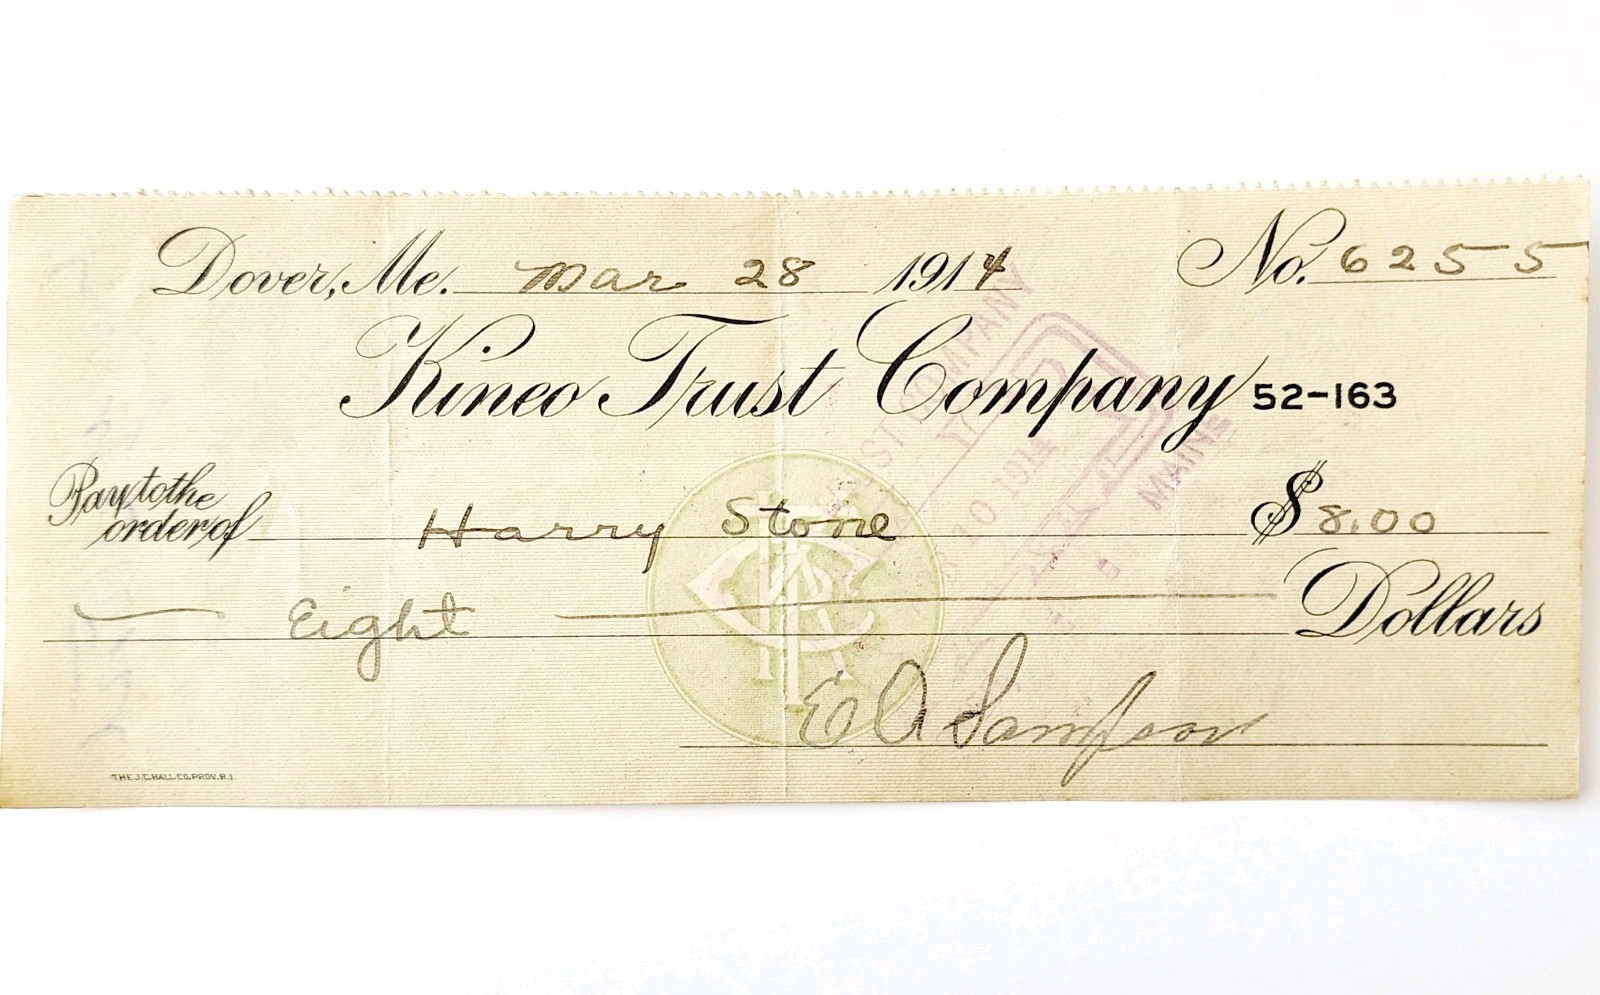 Dover, Me. Mar 28 1914 No. 6255
Kineo Trust Company 52-163
Pay to the
order of Harry Stone $8.00
Eight Dollars
E A Sampson
THE J.C. HALL CO. PROV. R.I.
TRUST COMPANY
10 1914
MAINE
KTC